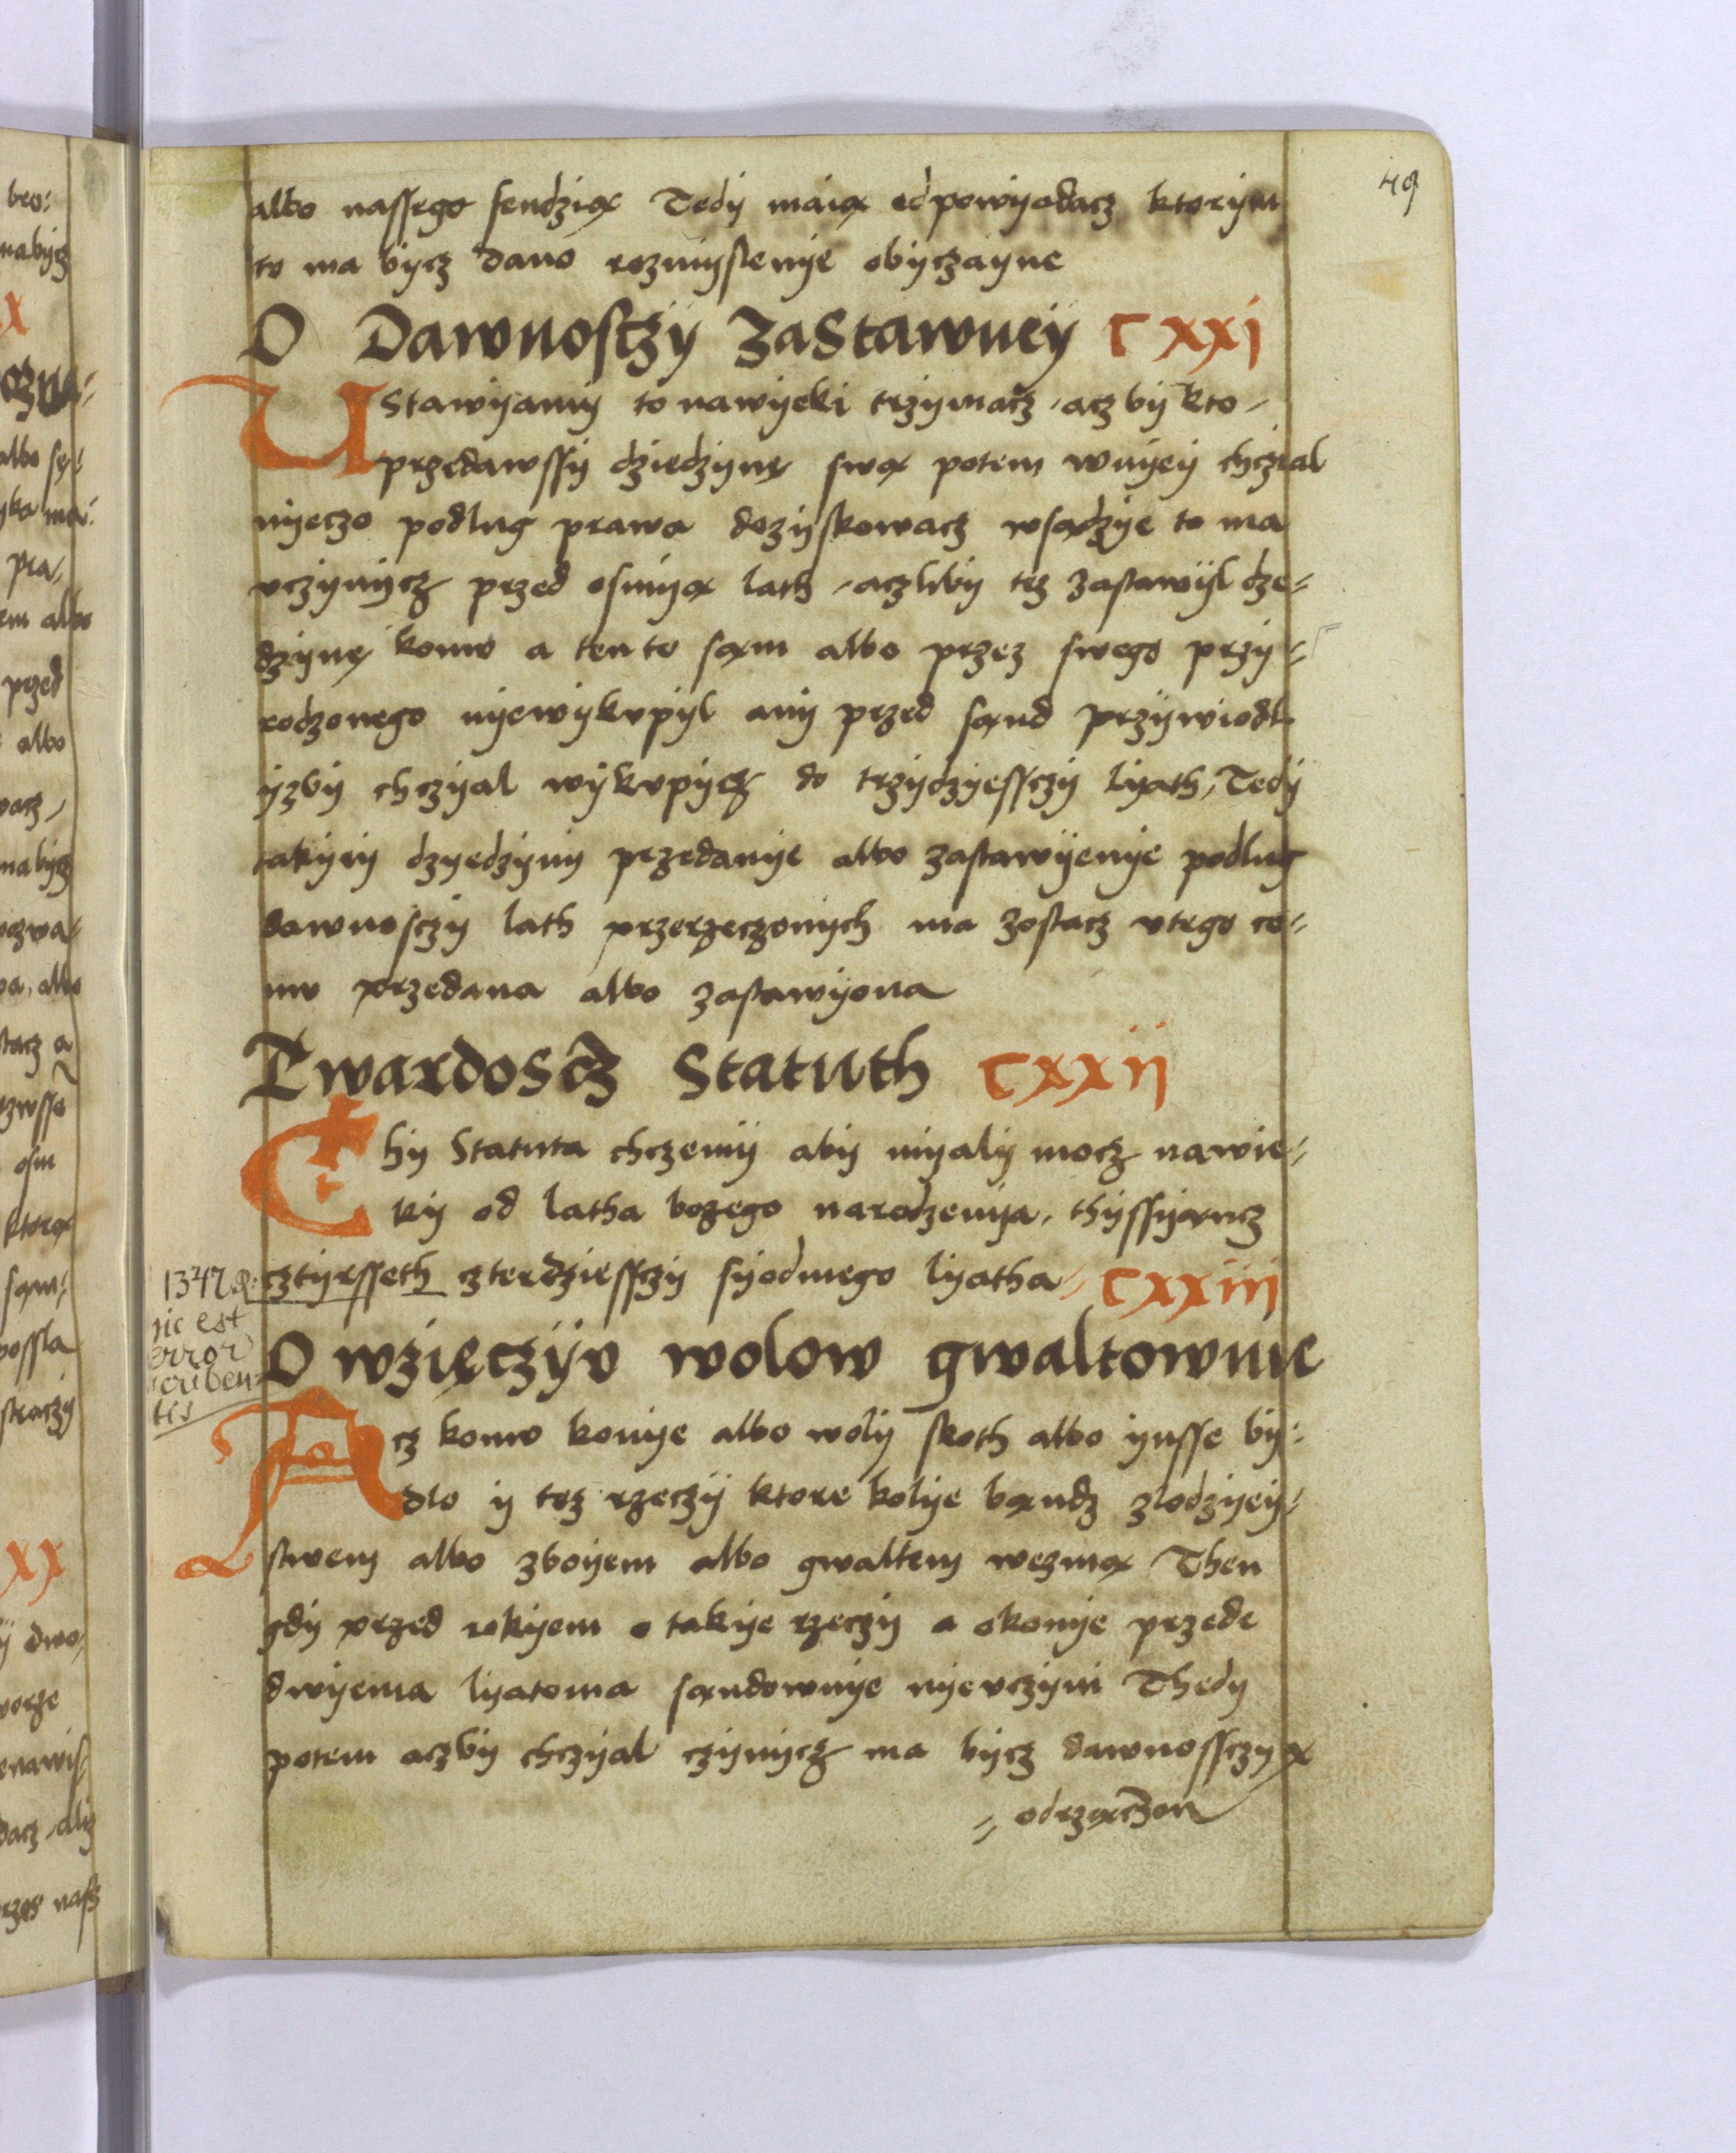 49
albo nassego sendzią Tedÿ maią odpowÿadacz ktorÿm
to ma bÿcz dano rozmÿslenÿe obÿczaÿne
O Dawnosczÿ zastawneÿ CXXI
UStawÿamÿ to nawÿeki trzÿmacz, acz bÿ kto,
przedawssÿ dziedzÿnę swą potem wnÿeÿ chczial
nÿeczo podlug prawa dozÿskowacz wsądzÿe to ma
vczÿnÿcz przed osmÿą lath, aczliby tez zastawÿl dze=
dzÿnę komv a ten to sąm albo przez swego przÿ=
rodzonego nÿewÿkvpÿl anÿ przed sąnd przÿwiodl
ÿzbÿ chczÿal wÿkvpÿcz do trzÿdzÿessczÿ lÿath, Tedÿ
takÿeÿ dzÿedzÿnÿ przedanÿe albo zastawÿenÿe podlug
dawnosczÿ lath przerzeczonÿch ma zostacz vtego co=
mv przedana albo zastawÿona
Twardoscz Statuth CXXII
Thÿ Statuta chczemÿ abÿ mÿalÿ mocz nawie=
kÿ od latha bozego narodzenÿa, thÿssÿąncz
cztÿrsseth czterdziessczÿ sÿodmego lÿatha, CXXIII
1347
hic est
error
scriben=
tis
O wzięczÿv wolow gwaltownie
Acz komv konÿe albo wolÿ skoth albo ÿnsse bÿ=
dlo ÿ tez rzeczÿ ktore kolÿe bąndz zlodzÿeÿ=
stwem albo zboÿem albo gwaltem wezmą Then
gdÿ przed rokÿem o takÿe rzeczÿ a okonÿe przede
dwÿema lÿatoma sąndownÿe nÿevczÿni Thedÿ
potem aczbÿ chczÿal czÿnÿcz ma bÿcz dawnossczÿą
= odrzączon